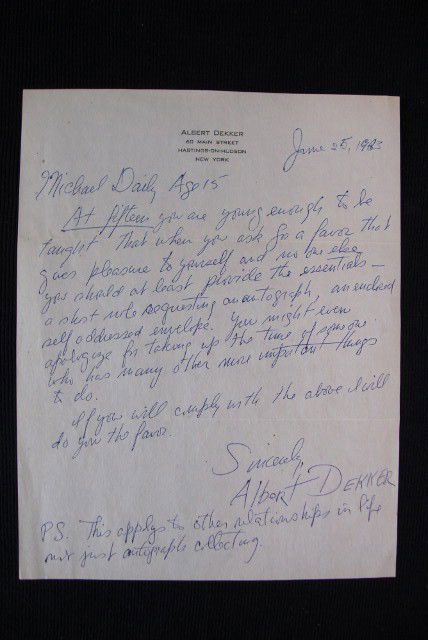 ALBERT DEKKER
60 MAIN STREET
HASTINGS-ON-HUDSON
NEW YORK
June 25, 1963
Michael Daily Age 15
At fifteen you are young enough to be
taught that when you ask for a favor that
gives pleasure to yourself and no one else
you should at least provide the essentials —
a short note requesting an autograph, an enclosed
self addressed envelope. You might even
apologize for taking up the time of someone
who has many other more important things
to do.
If you will comply with the above I will
do you the favor.
Sincerely
Albert DEKKER
P.S. This applys to other relationships in life
not just autograph collecting.